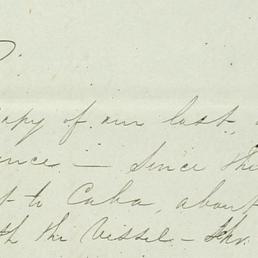 copy of our last,
ence — Since the
t to Cuba, about
th the Vessel —